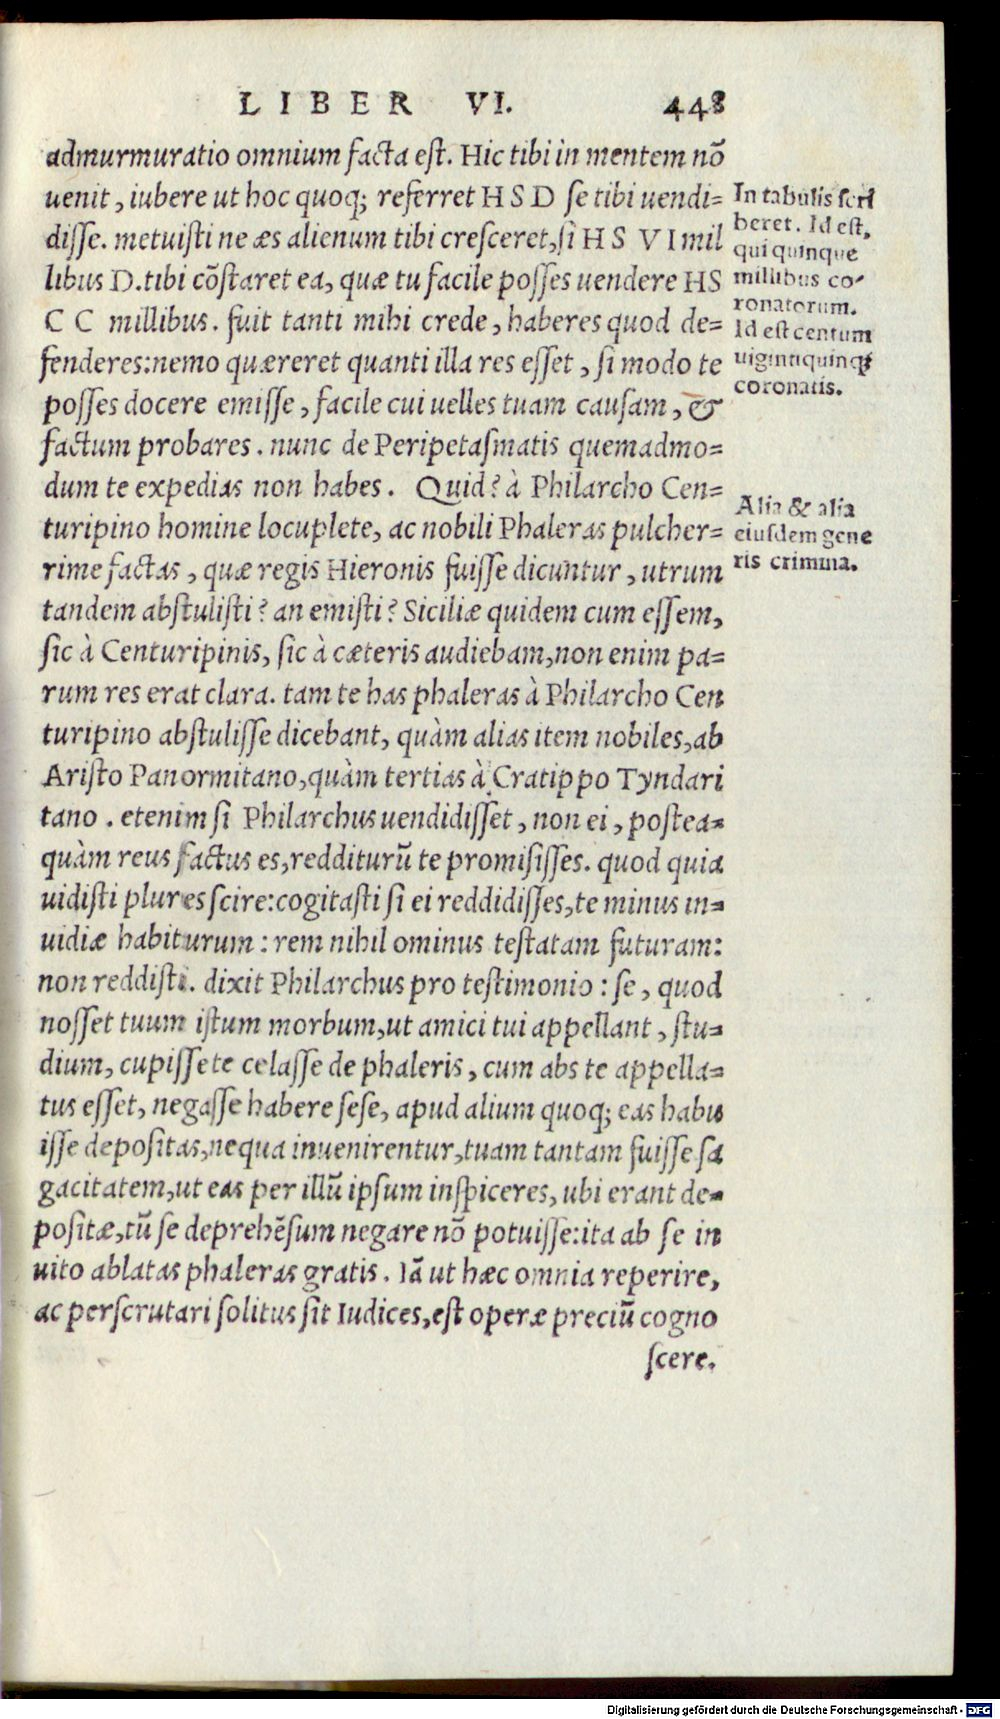 LIBER VI. 448
admurmuratio omnium facta est. Hic tibi in mentem nō
uenit, iubere ut hoc quoq; referret HSD se tibi uendi=
disse. metuisti ne æs alienum tibi cresceret, si HS VI mil
libus D. tibi cōstaret ea, quæ tu facile posses uendere HS
CC millibus. fuit tanti mihi crede, haberes quod de=
fenderes: nemo quæreret quanti illa res esset, si modo te
posses docere emisse, facile cui uelles tuam causam, &
factum probares. nunc de Peripetasmatis quemadmo=
dum te expedias non habes. Quid? à Philarcho Cen=
turipino homine locuplete, ac nobili Phaleras pulcher=
rime factas, quæ regis Hieronis fuisse dicuntur, utrum
tandem abstulisti? an emisti? Siciliæ quidem cum essem,
sic à Centuripinis, sic à cæteris audiebam, non enim pa=
rum res erat clara. tam te has phaleras à Philarcho Cen
turipino abstulisse dicebant, quàm alias item nobiles, ab
Aristo Panormitano, quàm tertias à Cratippo Tyndari
tano. etenim si Philarchus uendidisset, non ei, postea=
quàm reus factus es, redditurū te promisisses. quod quia
uidisti plures scire: cogitasti si ei reddidisses, te minus in=
uidiæ habiturum: rem nihil ominus testatam futuram:
non reddisti. dixit Philarchus pro testimonio: se, quod
nosset tuum istum morbum, ut amici tui appellant, stu=
dium, cupisse te celasse de phaleris, cum abs te appella=
tus esset, negasse habere sese, apud alium quoq; eas habu
isse depositas, nequa inuenirentur, tuam tantam fuisse sa
gacitatem, ut eas per illū ipsum inspiceres, ubi erant de=
positæ, tū se deprehēsum negare nō potuisse: ita ab se in
uito ablatas phaleras gratis. Iā ut hæc omnia reperire,
ac perscrutari solitus sit Iudices, est operæ preciū cogno
scere.
In tabulis scri
beret. Id est,
qui quinque
millibus co-
ronatorum.
Id est centum
uigintiquinq;
coronatis.
Alia & alia
eiusdem gene
ris crimina.
Digitalisierung gefördert durch die Deutsche Forschungsgemeinschaft - DFG